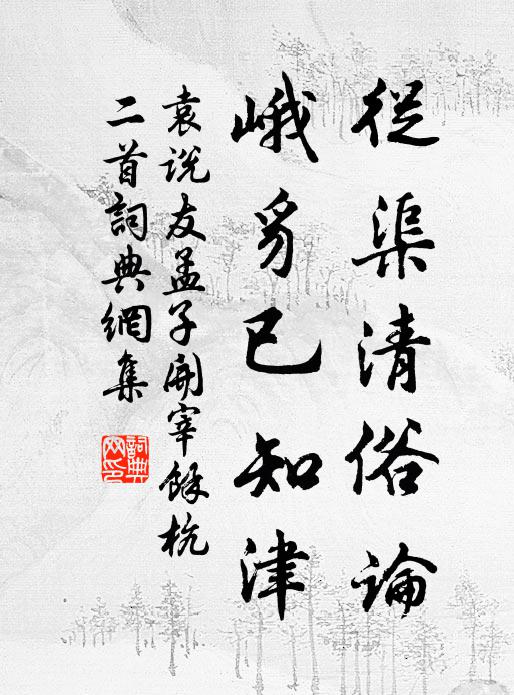 從渠清俗論
峨豸已知津
袁說友孟子開宰餘杭
二首詞典網集
詞典网印